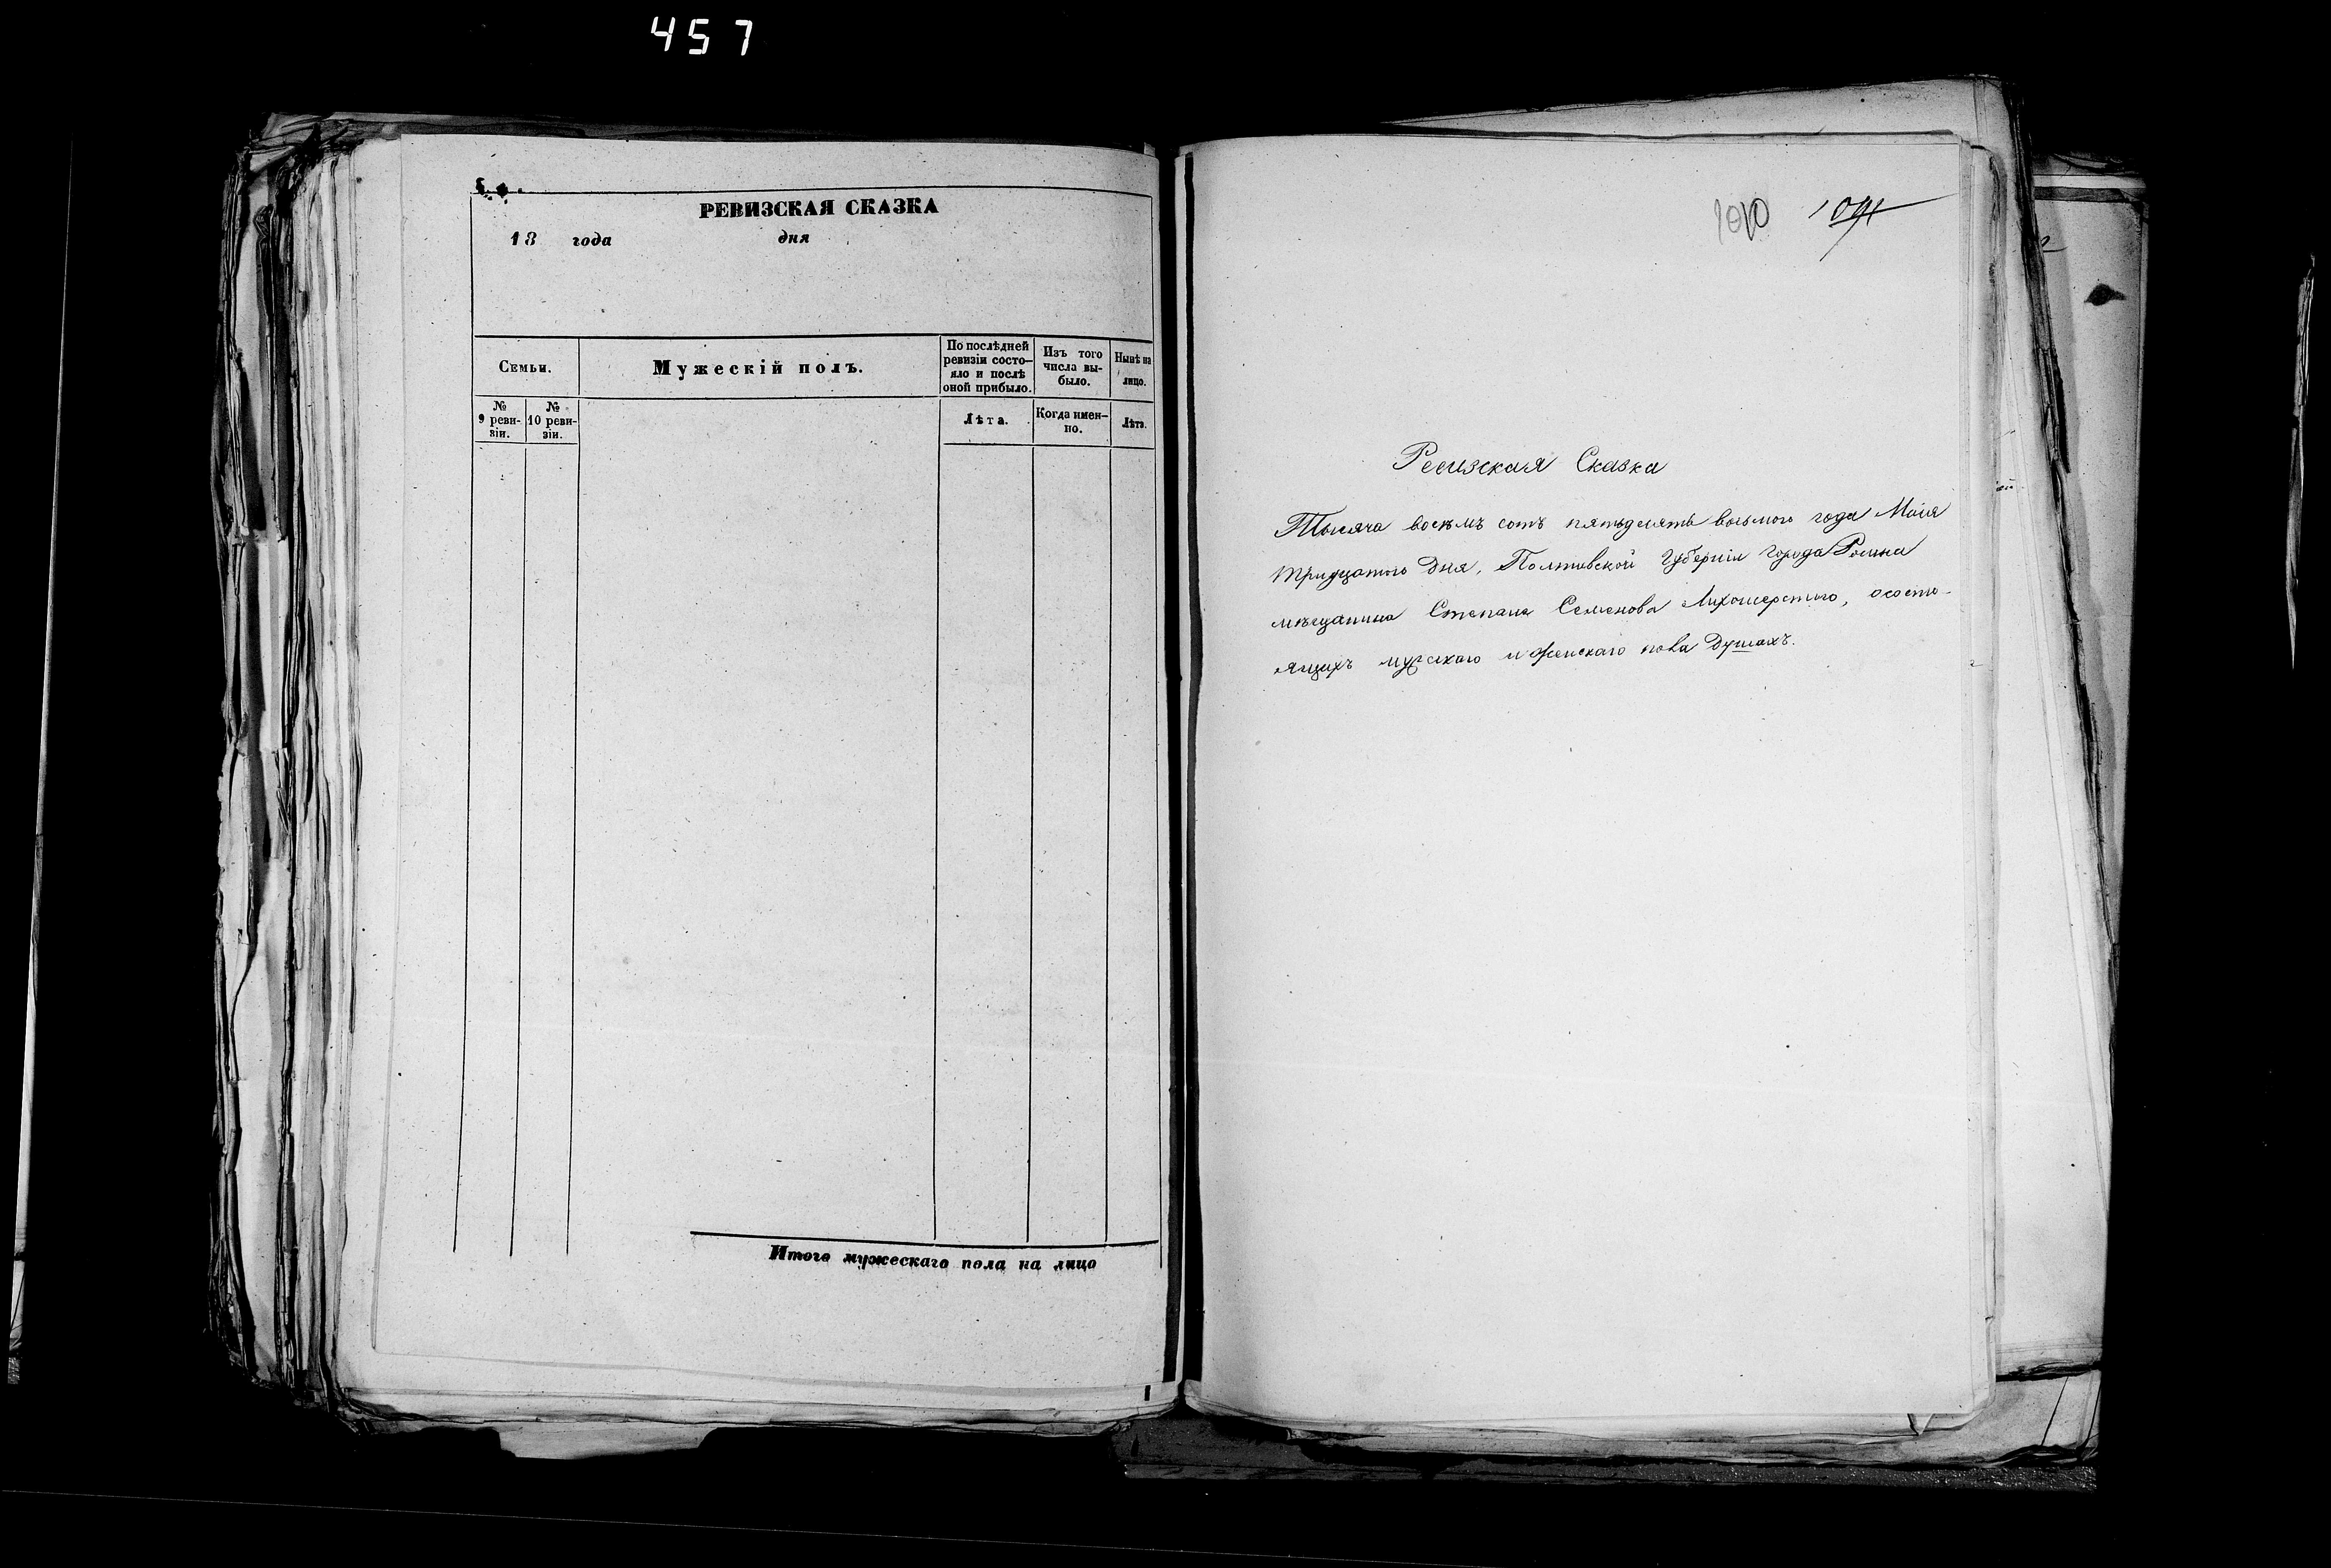 457
РЕВИЗСКАЯ СКАЗКА
18 года дня
Семьи.
Мужескій полъ.
По послѣдней ревизіи состо-
яло и послѣ
оной прибыло.
Изъ того
числа вы-
было.
Нынѣ на
лицо.
№
9 реви-
зіи.
№
10 реви-
зіи.
Лѣта.
Когда имен-
но.
Лѣта.
Итого мужескаго пола на лицо
1010 1091
Ревизская Сказка
Тысяча восемъ сотъ пятьдесятъ восьмого года Маія
тридцатого дня, Полтавской Губерніи города Ромна
мѣщанина Степана Семенова Лихошерстого, ососто-
ящихъ мужскаго и женскаго пола душахъ.